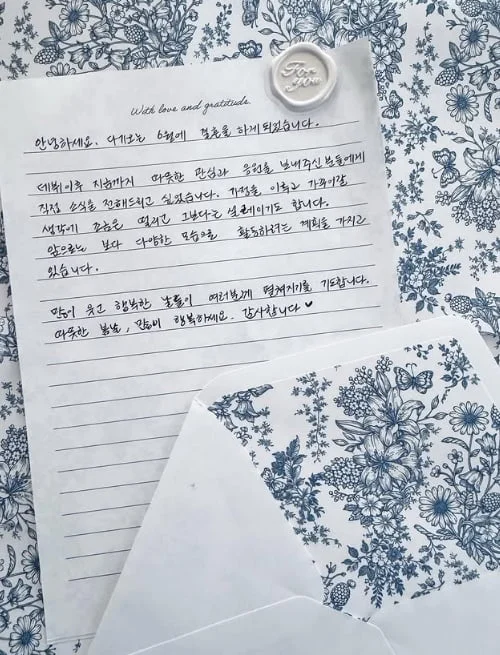 For you
With love and gratitude.
안녕하세요. 다가오는 6월에 결혼을 하게 되었습니다.
데뷔이후 지금까지 따뜻한 관심과 응원을 보내주신 분들에게
직접 소식을 전해드리고 싶었습니다. 가정을 이루고 가꾸어갈
생각에 조금은 떨리고 그보다는 설레이기도 합니다.
앞으로는 보다 다양한 모습으로 활동하려는 계획을 가지고
있습니다.
많이 웃고 행복한 날들이 여러분께 펼쳐지기를 기도합니다.
따뜻한 봄날, 많이 행복하세요. 감사합니다 ♥